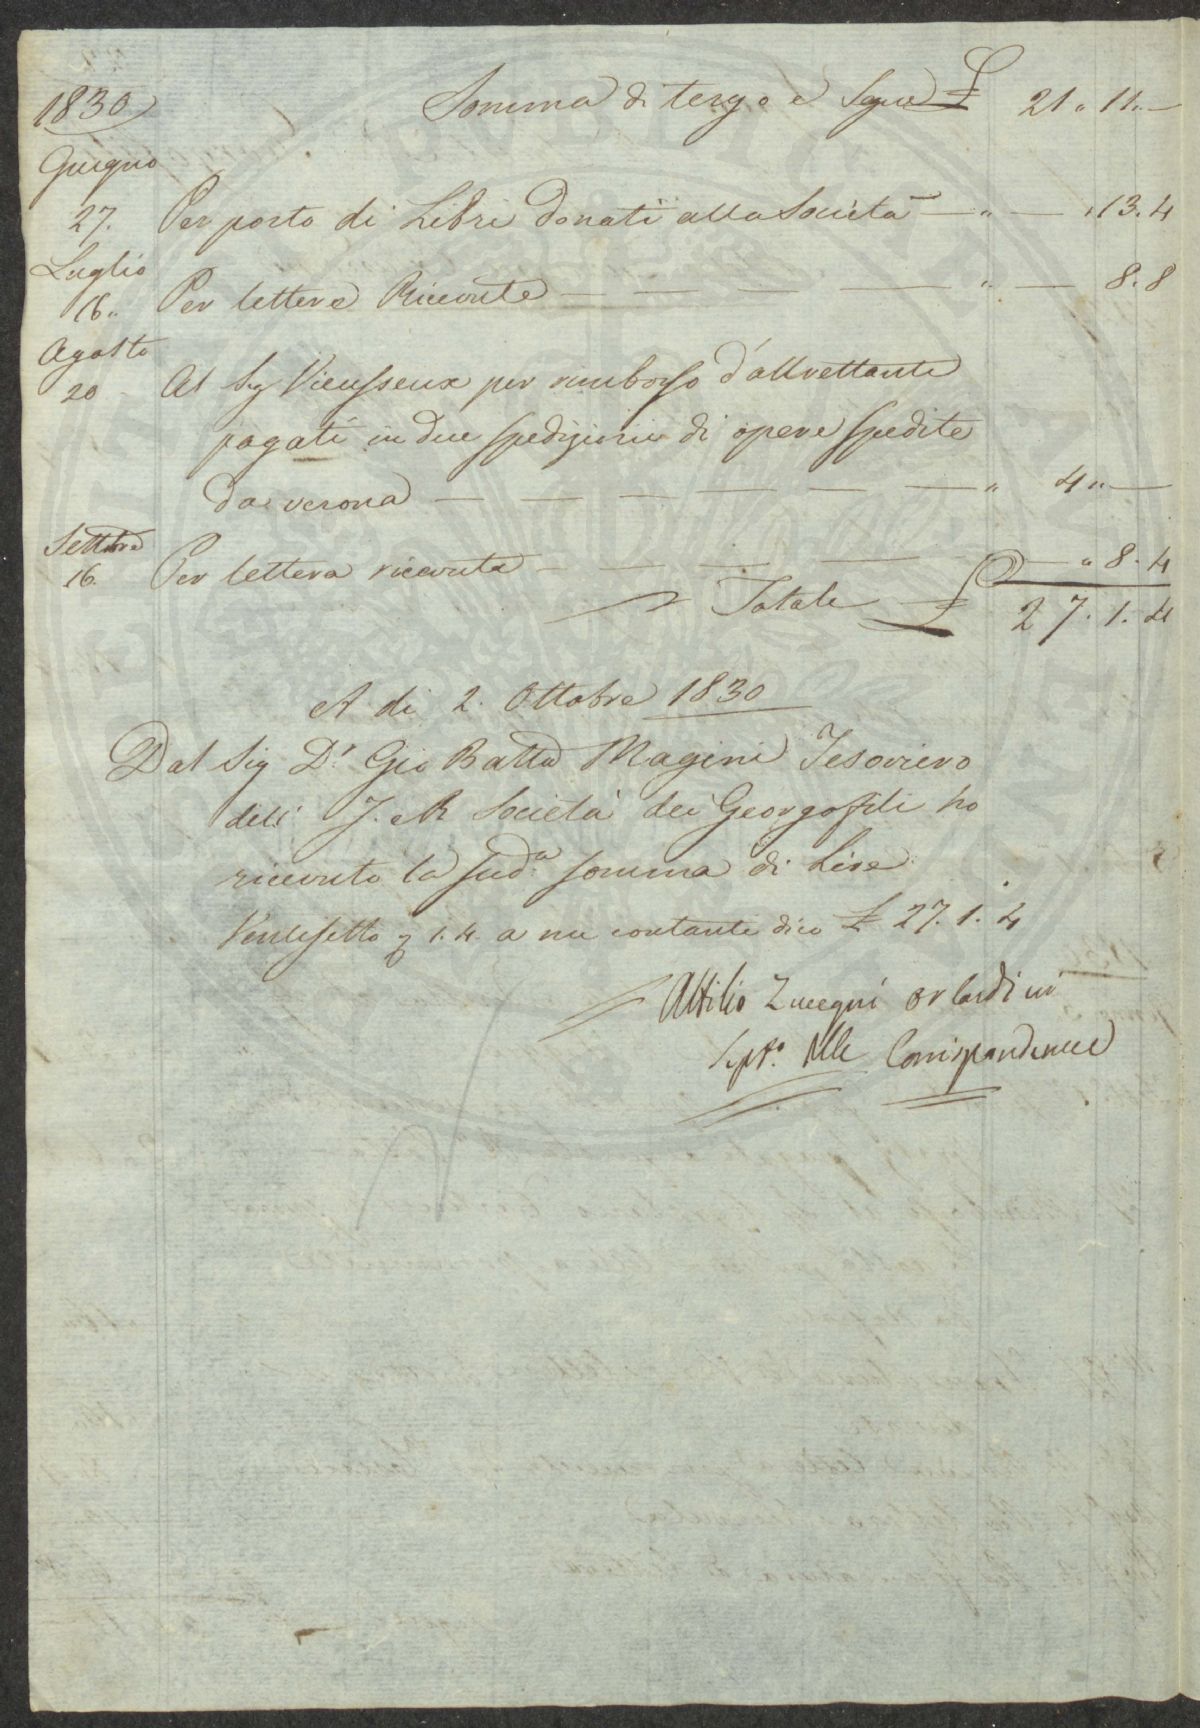 1830 Somma di tergo e Segue £ 21 " 11 " —
Giugno
27. Per porto di Libri donati alla Società — " — " 13. 4
Luglio
16. Per lettere Ricevute — — — — " — 8. 8
Agosto
20 Al Sig Vieusseux per rimborso d'altrettante
pagati in due spedizioni di opere spedite
da verona — — — — — — " 4 " —
Settbre
16. Per lettera ricevuta — — — — — " 8. 4
Totale £ 27. 1. 4
A di 2. Ottobre 1830
Dal Sig Dr Gio Batta Magini Tesoriero
dell' J. e R Società dei Georgofili ho
ricevuto la sudª somma di Lire
Ventisette 1. 4. a me contante dico £ 27. 1. 4
Attilio Zuccagni Orlandini
Corrispondenze